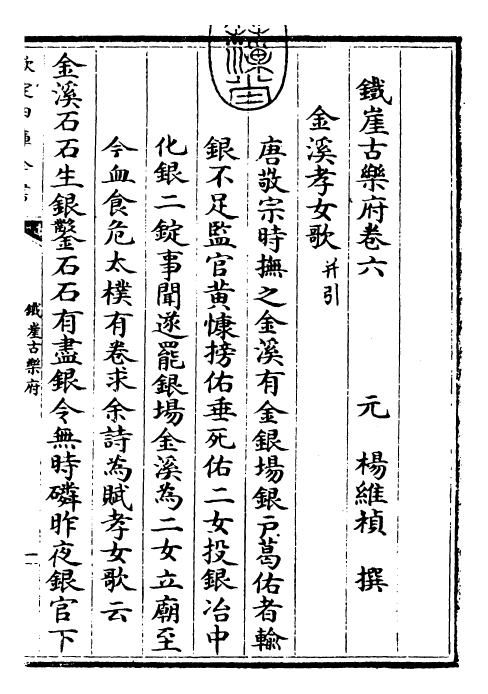 鐵崖古樂府卷六
元 楊維楨 撰
金溪孝女歌 并引
唐敬宗時撫之金溪有金銀場銀戸葛佑者輸
銀不足監官黄慷搒佑垂死佑二女投銀冶中
化銀二錠事聞遂罷銀塲金溪為二女立廟至
今血食危太樸有卷求余詩為賦孝女歌云
金溪石石生銀鑿石石有盡銀令無時磷昨夜銀官下
欽定四庫全書
鐵崖古樂府
一